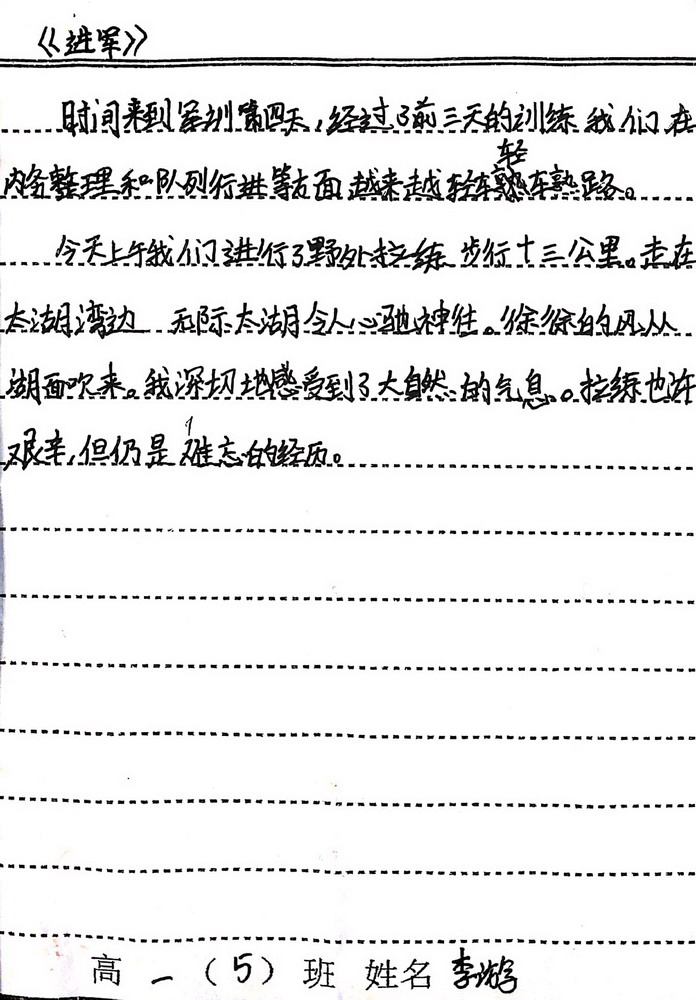 《进军》
时间来到军训第四天，经过了前三天的训练 我们在
内务整理和队列行进等方面 越来越轻车熟轻车熟路。
今天上午我们进行了野外拉练 步行十三公里。走在
太湖湾边 无际太湖令人心驰神往。徐徐的风从
湖面吹来。我深切地感受到了大自然的气息。拉练也许
艰辛，但仍是难忘的经历。
高一（5）班 姓名 李游